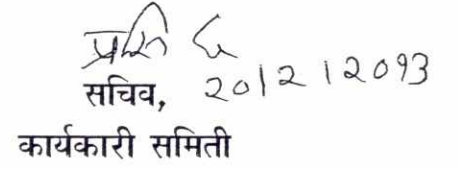 सचिव, 20/2/2093
कार्यकारी समिती